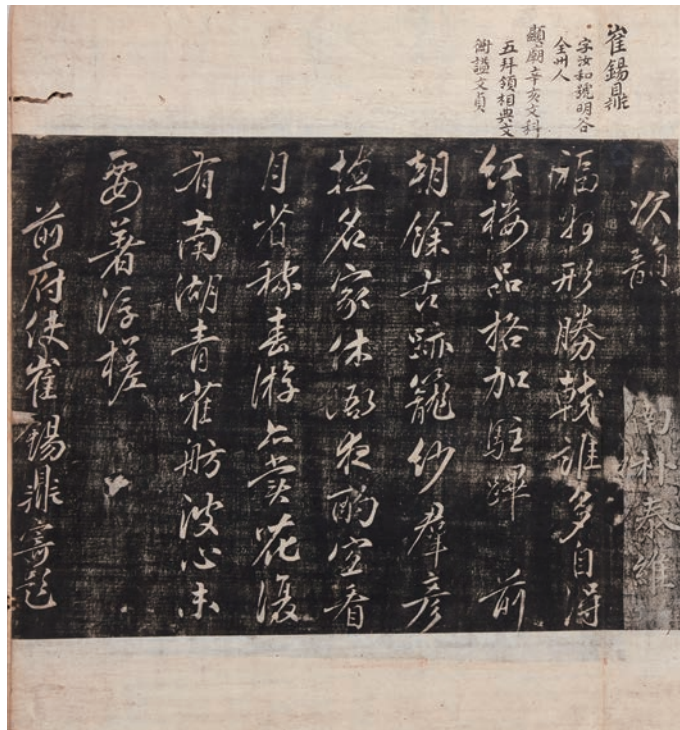 崔錫鼎
字汝和號明谷
全州人
顯廟辛亥文科
五拜領相典文
衡謚文貞
南朴泰維
次韻
福州形勝誰多自得
紅樓品格加駐蹕 前
朝餘古跡籠紗羣彦
擅名家休澣夜酌宜看
月省稼春游亦賞花復
有南湖青雀舫波心未
要著浮槎
前府使崔錫鼎寄題